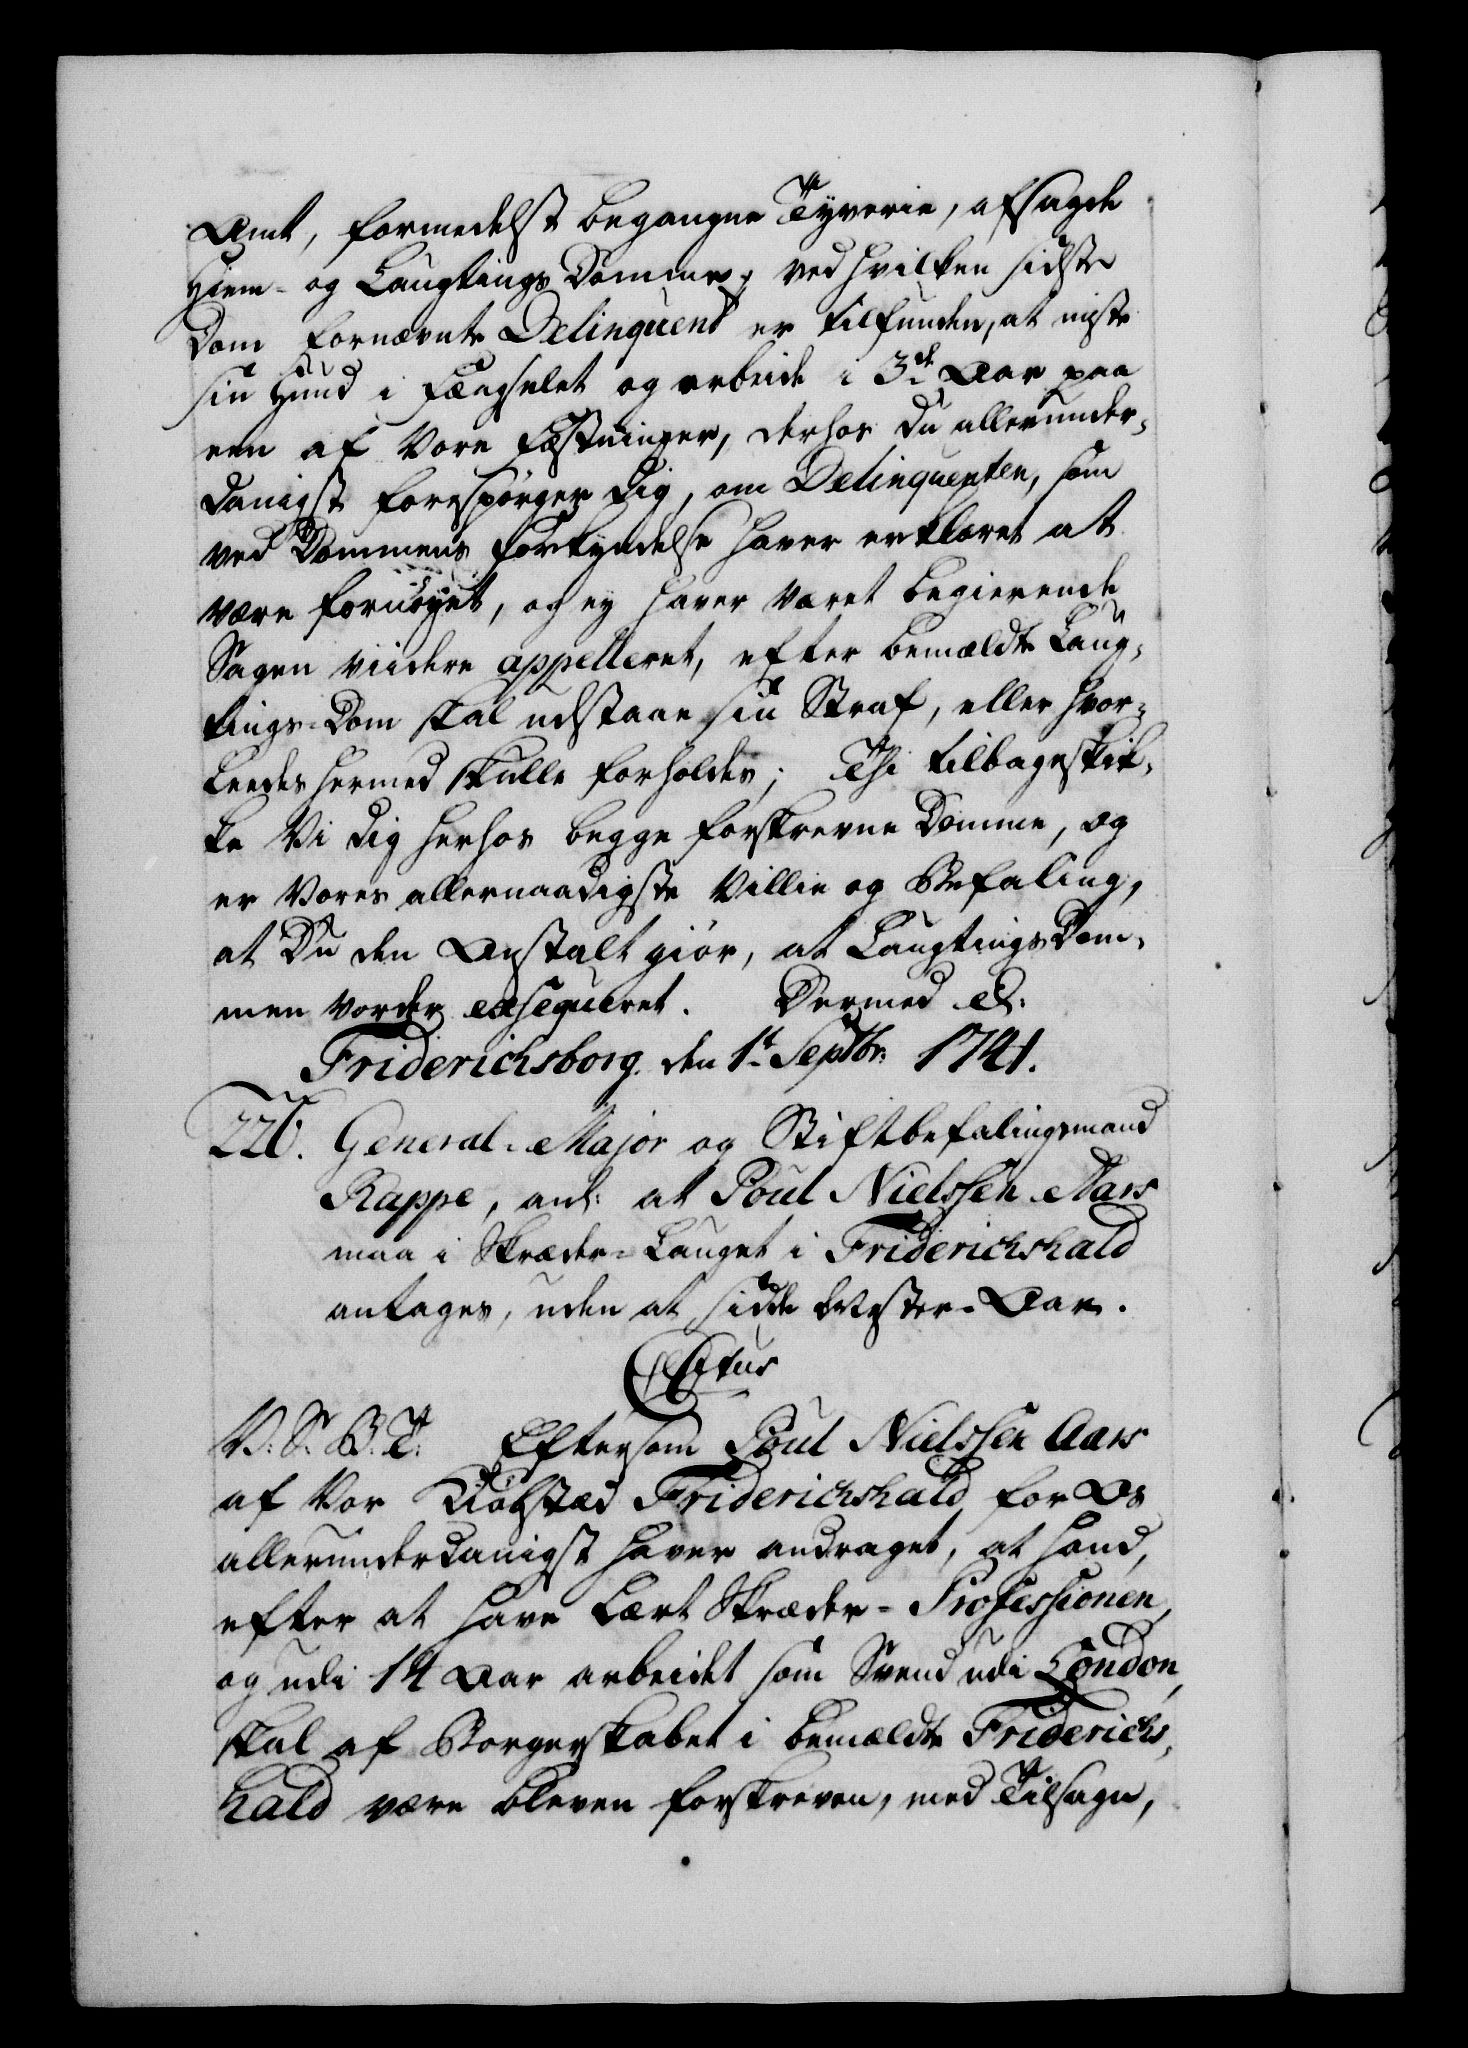 Amt, formedelst begangne Tyverie, afsagde
Hiem- og Laugtings Domme, ved hvilken sidste
Dom fornævnte Delinquent er tilfunden, at miste
sin Hud i Fængselet og arbeide i 3de Aar paa
een af Vore Fæstninger, derhos Du allerunder-
danigst forespörger dig, om Delinquenten, som
ved Dommens Forkyndelse haver erklæret at
være fornöyet, og ey haver været begierende
Sagen viidere appelleret, efter bemældte Laug-
tings-Dom skal udstaae sin Straf, eller hvor-
leedes hermed skulle forholdes; Thi tilbageskik-
ke Vi dig herhos begge forskrevne Domme, og
er Vores allernaadigste Villie og Befaling,
at Du den Anstalt giör, at Laugtings Dom-
men vorder exseqveret. Dermed etc:
Friderichsborg den 1t Septbr: 1741.
226. General-Major og Stiftbefalingsmand
Rappe, anl: at Poul Nielssen Aars
maa i Skræder-Lauget i Friderichshald
antages, uden at sidde Mester-Aar.
Citus
V: S: B: T: Eftersom Poul Nielssen Aars
af Vor Kiöbstæd Friderichshald, for Os
allerunderdanigst haver andraget, at hand,
efter at have lært Skræder-Professionen,
og udi 14 Aar arbeidet som Svend udi London,
skal af Borgerskabet i bemældte Friderichs-
hald være bleven forskreven, med Tilsagn,